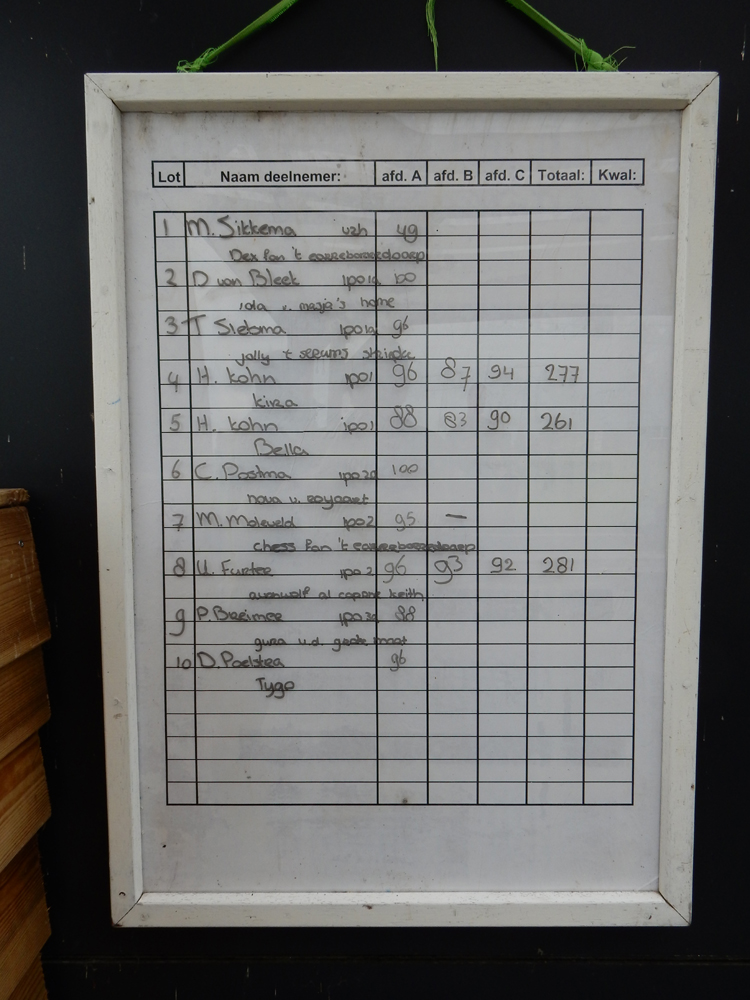 Lot Naam deelnemer: afd. A afd. B afd. C Totaal: Kwal:
1 M. Sikkema vzh 49
Dex fan 't
2 D van Bleek ipo1a 100
iola v. home
3 T Siebma ipo1a 96
jolly 't
4 H. Kohn ipo1 96 87 94 277
kira
5 H. Kohn ipo1 88 83 90 261
Bella
6 C. Postma ipo2a 100
nova v.
7 M. Moleveld ipo2 95 —
chess fan 't
8 U. ipo2 96 93 92 281
al capone keith
9 P. Breimer ipo3a 88
gura v.d. grote moat
10 D. Poelstra 96
Tygo